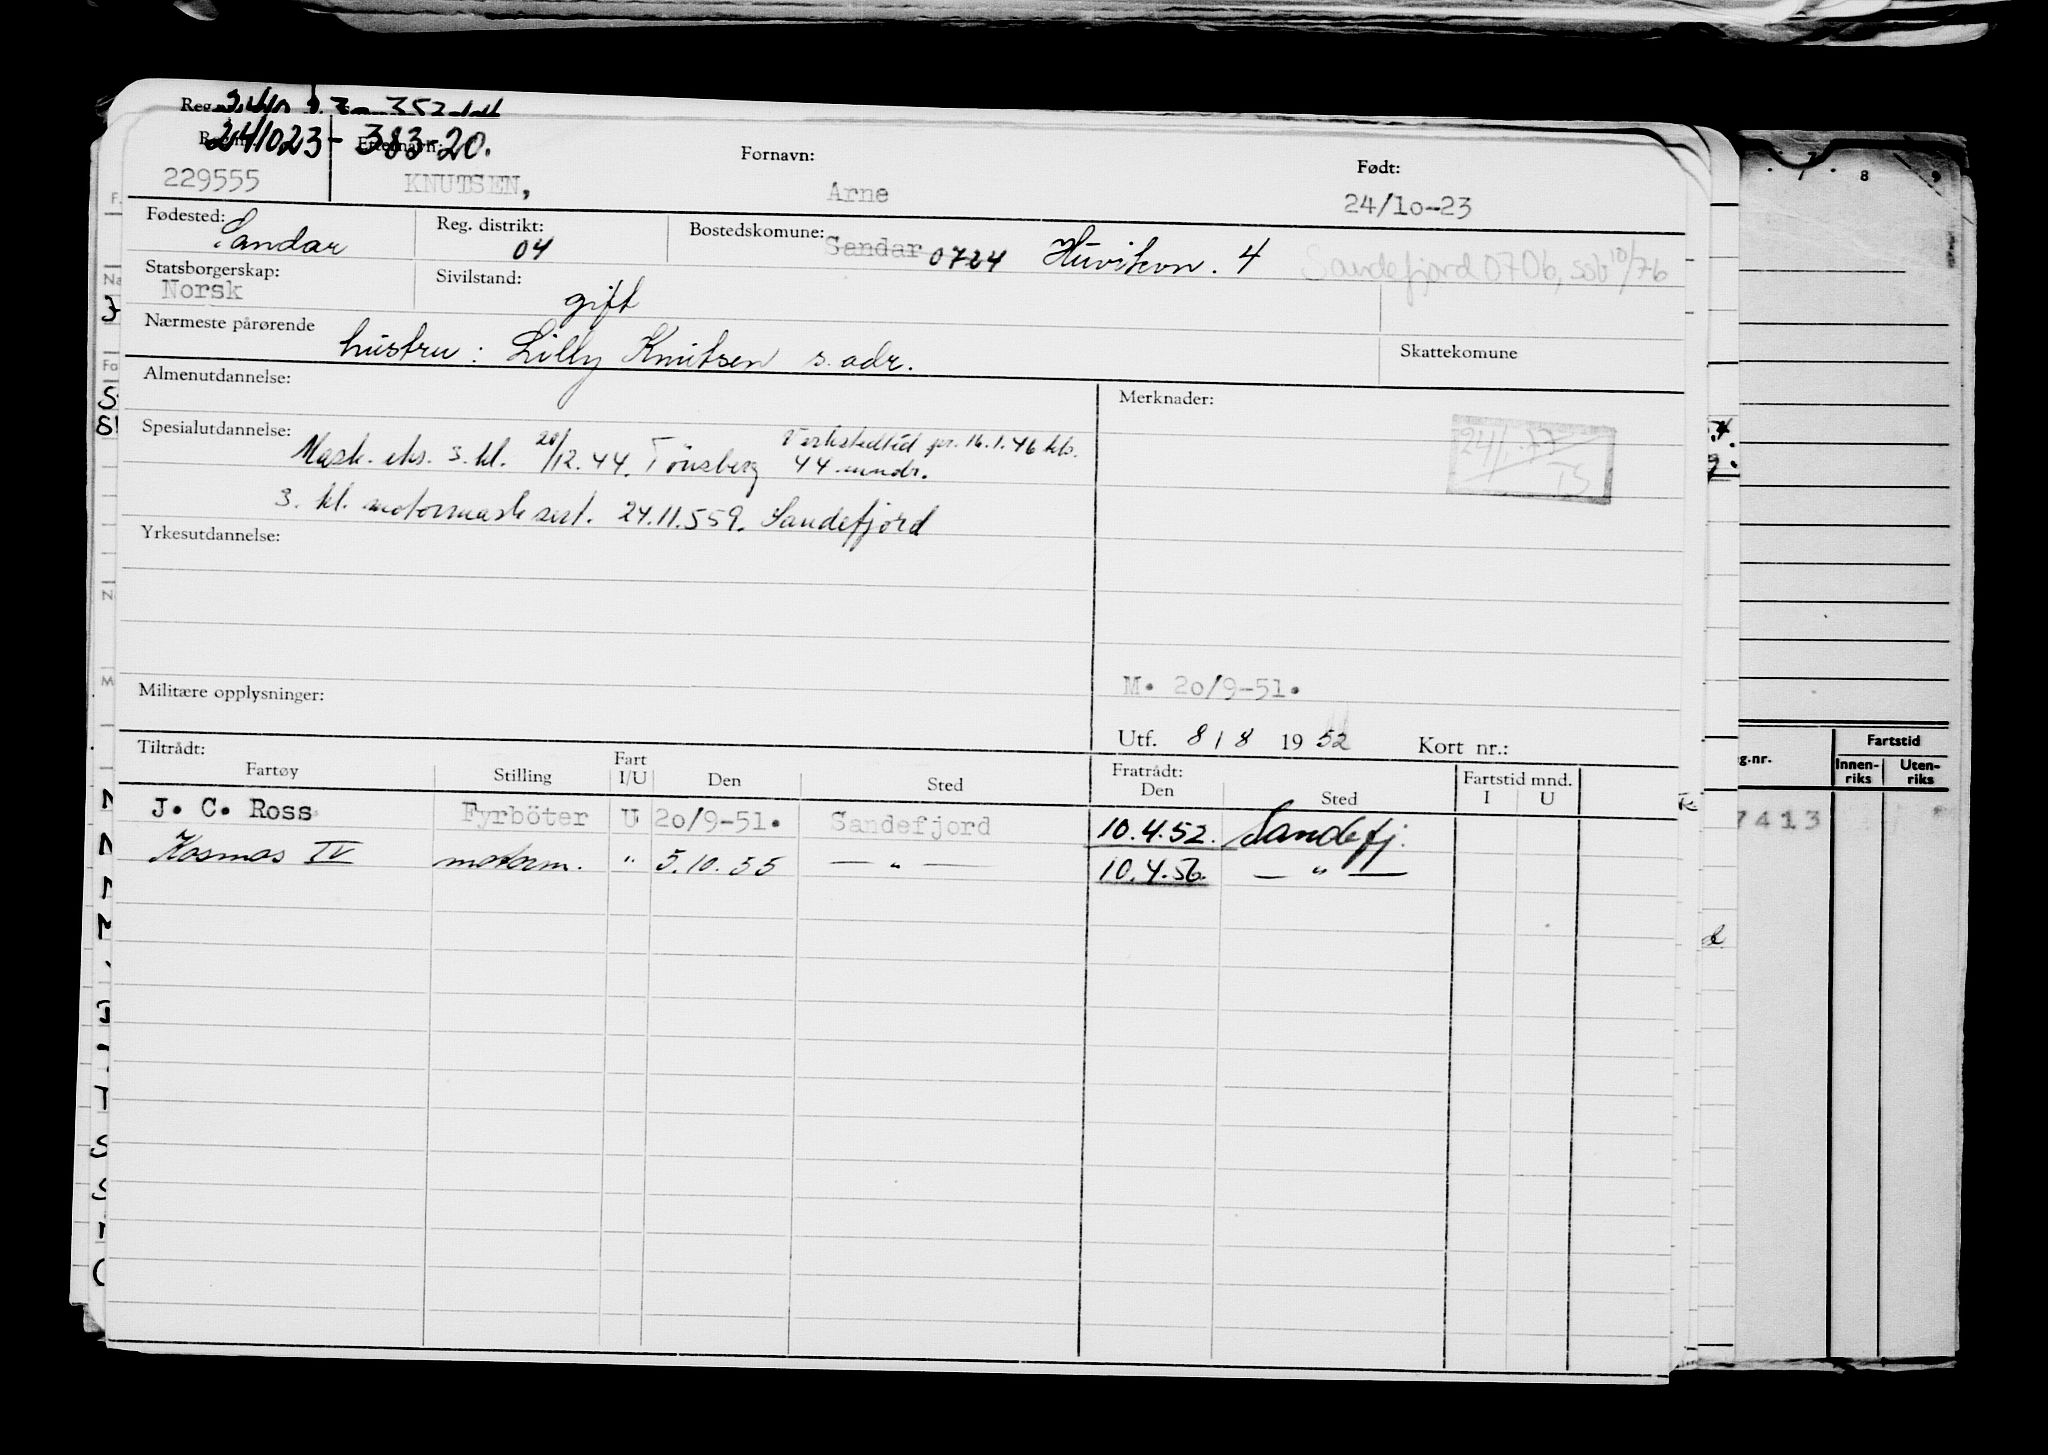 Reg.
241023-383-20.
Fornavn: Født:
229555 KNUTSEN, Arne 24/10-23
Fødested: Sandar Reg. distrikt: 04 Bostedskomune: Sandar 0724 Huvikvn. 4 Sandefjord 0706, ssb 10/76
Statsborgerskap: Norsk Sivilstand: gift
Nærmeste pårørende hustru: Lilly Knutsen s. adr. Skattekomune
Almenutdannelse: Merknader:
Spesialutdannelse: Mask. eks. 3. kl. 20/12.44. Tönsberg Verkstedtid pr. 16.1.46 44 mndr.
3. kl. motormask sert. 24.11.559. Sandefjord
Yrkesutdannelse:
M. 20/9-51.
Militære opplysninger:
Utf. 8/8 1952 Kort nr.:
Tiltrådt: Fratrådt:
Fartøy Stilling Fart I/U Den Sted Den Sted Fartstid mnd. I U
J. C. Ross Fyrböter U 20/9-51. Sandefjord 10.4.52. Sandefj.
Kosmos IV motorm. " 5.10.55 — " — 10.4.56. — " —
7 8 9
g.nr. Fartstid
Innen-riks Uten-riks
7413